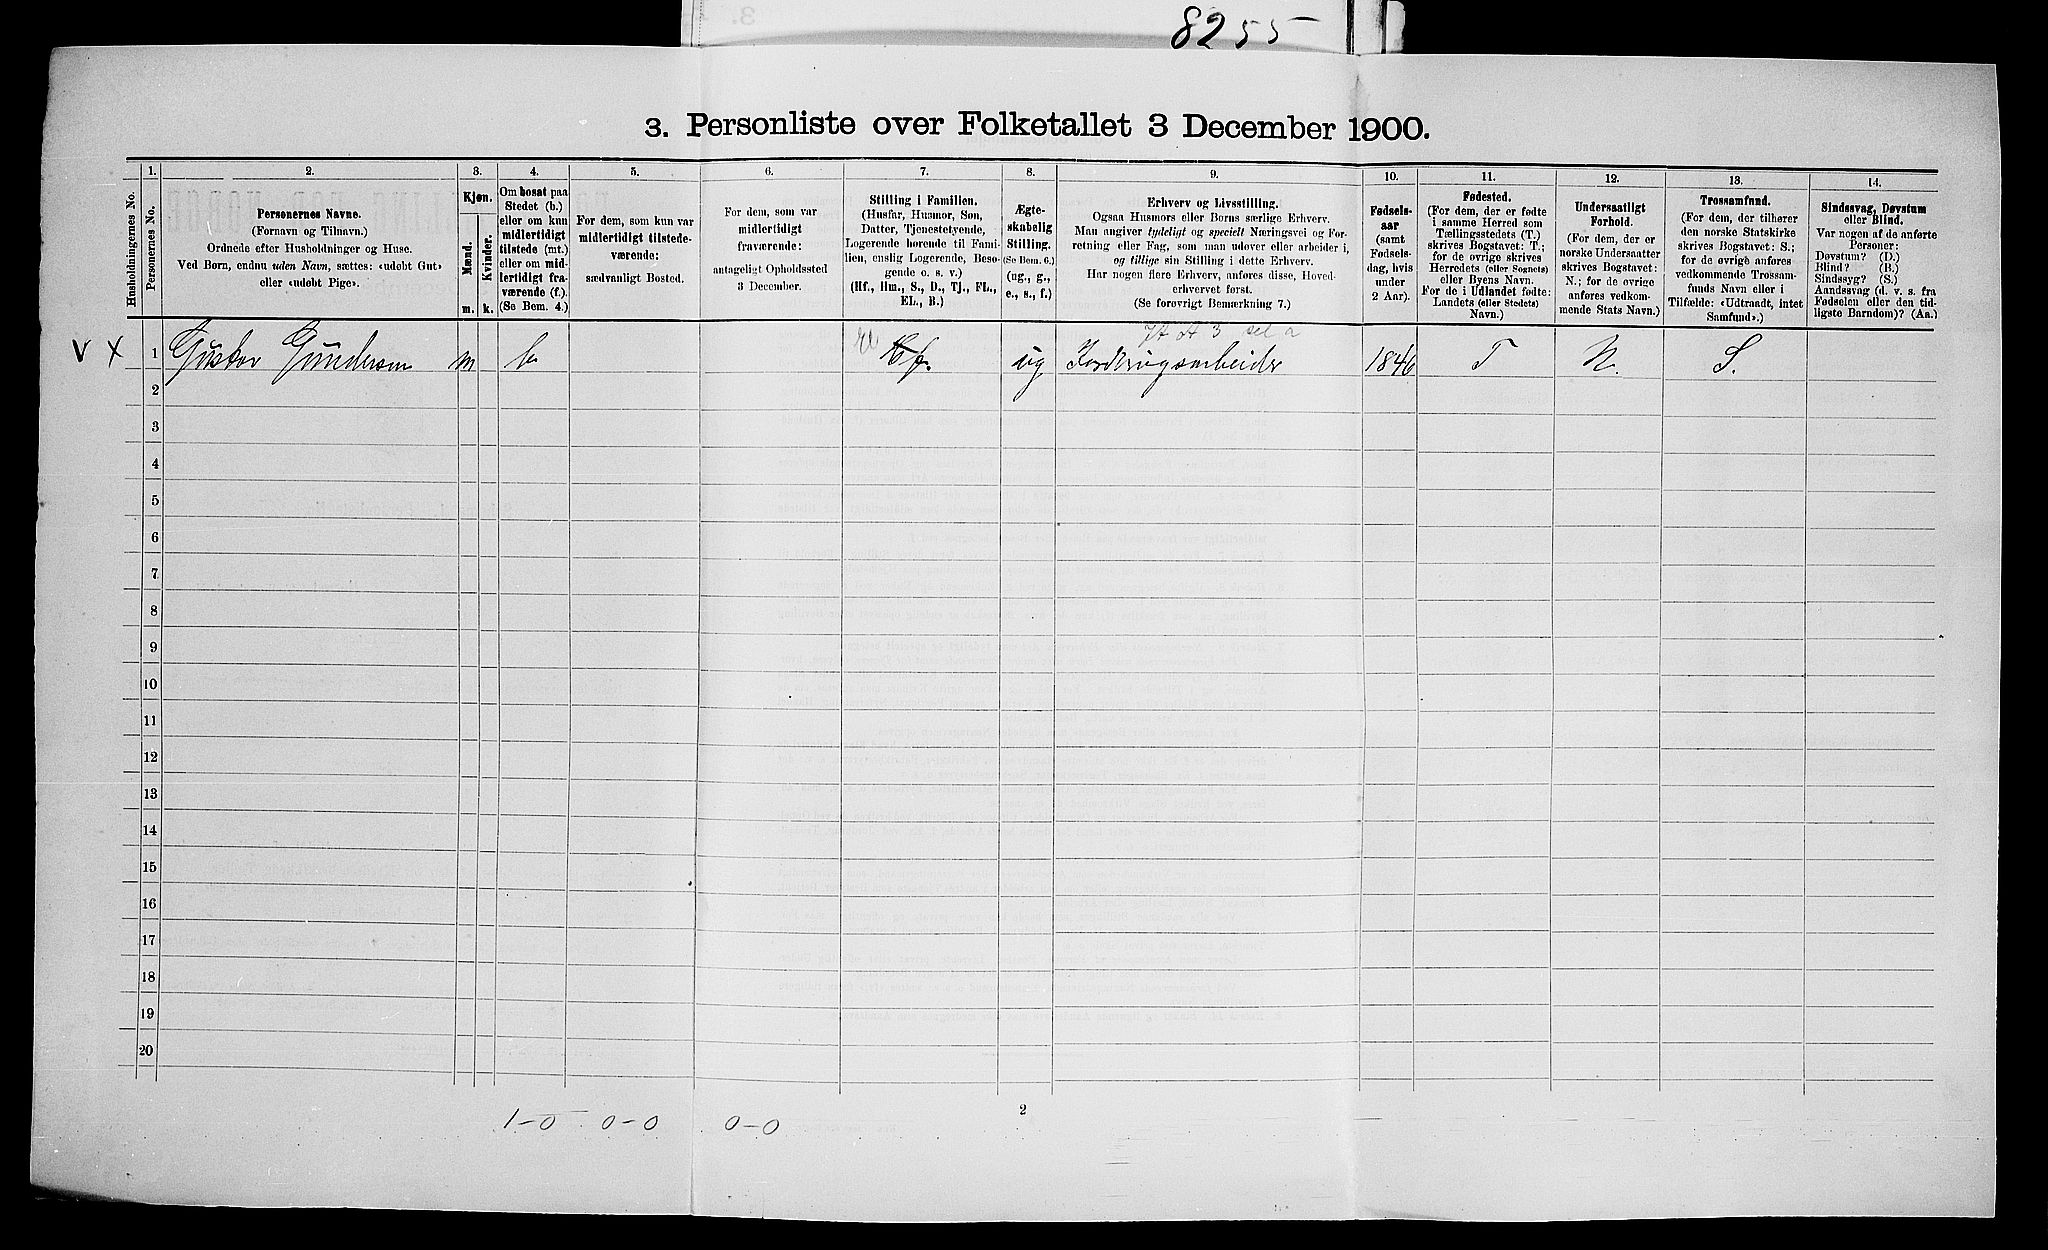 8255
3. Personliste over Folketallet 3 December 1900.
1. 2. 3. 4. 5. 6. 7. 8. 9. 10. 11. 12. 13. 14.
Husholdningernes No.
Personernes No.
Personernes Navne.
(Fornavn og Tilnavn.)
Ordnede efter Husholdninger og Huse.
Ved Børn, endnu uden Navn, sættes: «udøbt Gut»
eller «udøbt Pige».
Kjøn.
Mænd.
Kvinder.
m. k.
Om bosat paa
Stedet (b.)
eller om kun
midlertidigt
tilstede (mt.)
eller om mid-
lertidigt fra-
værende (f.).
(Se Bem. 4.)
For dem, som kun var
midlertidigt tilstede-
værende:
sædvanligt Bosted.
For dem, som var
midlertidigt
fraværende:
antageligt Opholdssted
3 December.
Stilling i Familien.
(Husfar, Husmor, Søn,
Datter, Tjenestetyende,
Logerende hørende til Fami-
lien, enslig Logerende, Besø-
gende o. s. v.)
(Hf., Hm., S., D., Tj., FL.,
EL., B.)
Ægte-
skabelig
Stilling.
(Se Bem. 6.)
(ug., g.,
e., s., f.)
Erhverv og Livsstilling.
Ogsaa Husmors eller Børns særlige Erhverv.
Man angiver tydeligt og specielt Næringsvei og For-
retning eller Fag, som man udøver eller arbeider i,
og tillige sin Stilling i dette Erhverv.
Har nogen flere Erhverv, anføres disse, Hoved-
erhvervet først.
(Se forøvrigt Bemærkning 7.)
Fødsels-
aar
(samt
Fødsels-
dag, hvis
under
2 Aar).
Fødested.
(For dem, der er fødte
i samme Herred som
Tællingsstedets (T.)
skrives Bogstavet: T.;
for de øvrige skrives
Herredets (eller Sognets)
eller Byens Navn.
For de i Udlandet fødte:
Landets (eller Stedets)
Navn.)
Undersaatligt
Forhold.
(For dem, der er
norske Undersaatter
skrives Bogstavet:
N.; for de øvrige
anføres vedkom-
mende Stats Navn.)
Trossamfund.
(For dem, der tilhører
den norske Statskirke
skrives Bogstavet: S.;
for de øvrige anføres
vedkommende Trossam-
funds Navn eller i
Tilfælde: «Udtraadt, intet
Samfund».)
Sindssvag, Døvstum
eller Blind.
Var nogen af de anførte
Personer:
Døvstum? (D.)
Blind? (B.)
Sindssyg? (S.)
Aandssvag (d. v. s. fra
Fødselen eller den tid-
ligste Barndom)? (Aa.)
V X 1 Gustav Gundersen m b. ug Jordbrugsarbeider 1846 T N. S.
2
3
4
5
6
7
8
9
10
11
12
13
14
15
16
17
18
19
20
1-0 0-0 0-0
2